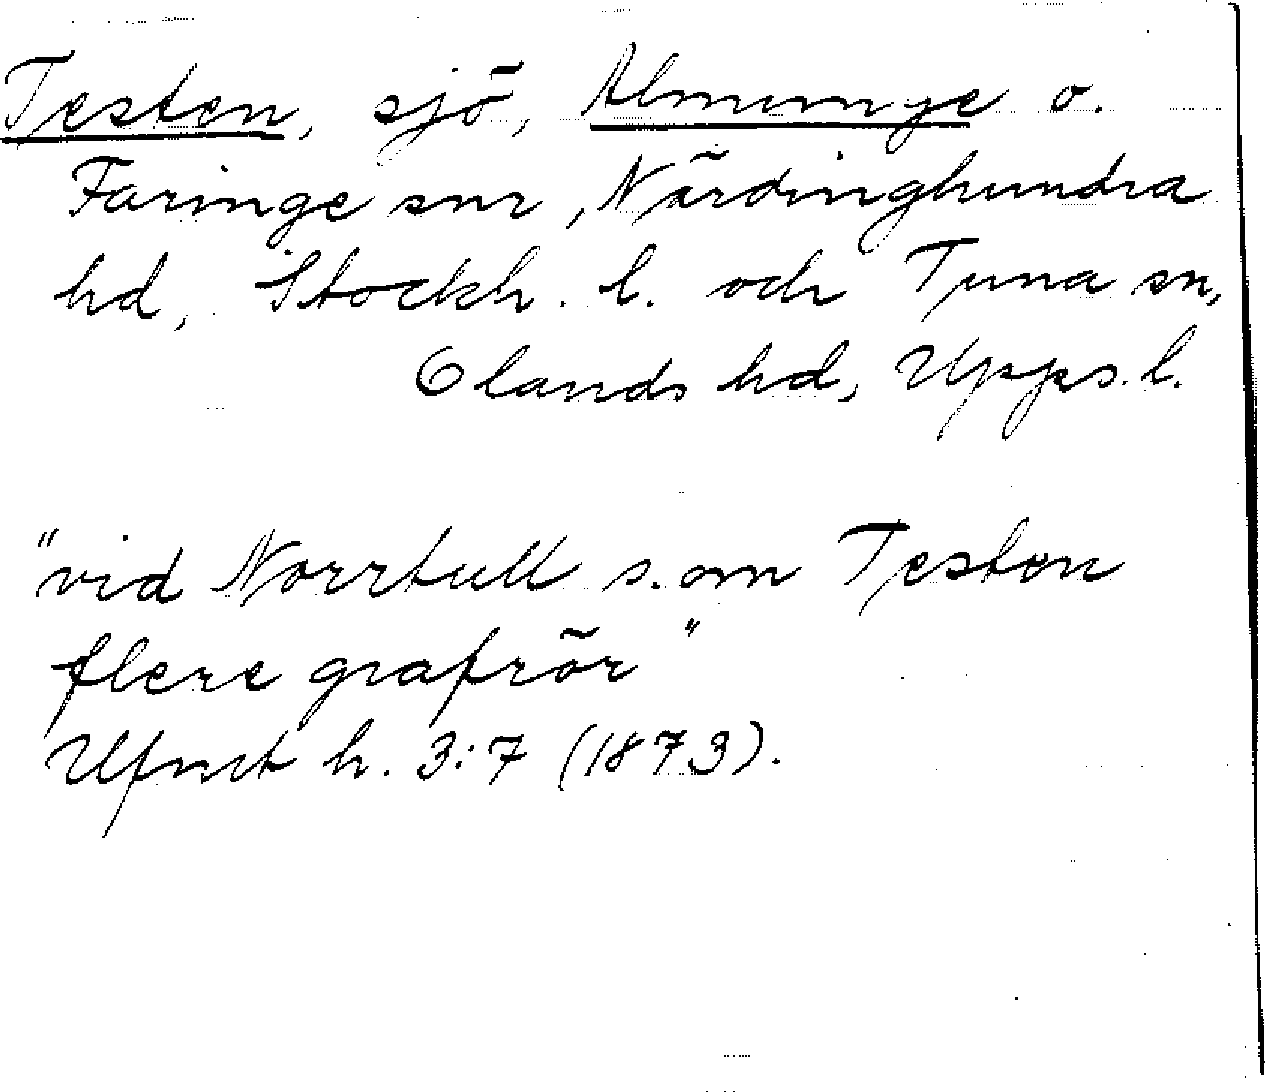 Testen, sjö, Almunge o.
Faringe snr, Närdinghundra
hd, Stockh. l. och Tuna sn,
Olands hd, Upps. l.
"vid Norrtull s. om Testen
flere grafrör"
Ufmt h. 3:7 (1873).